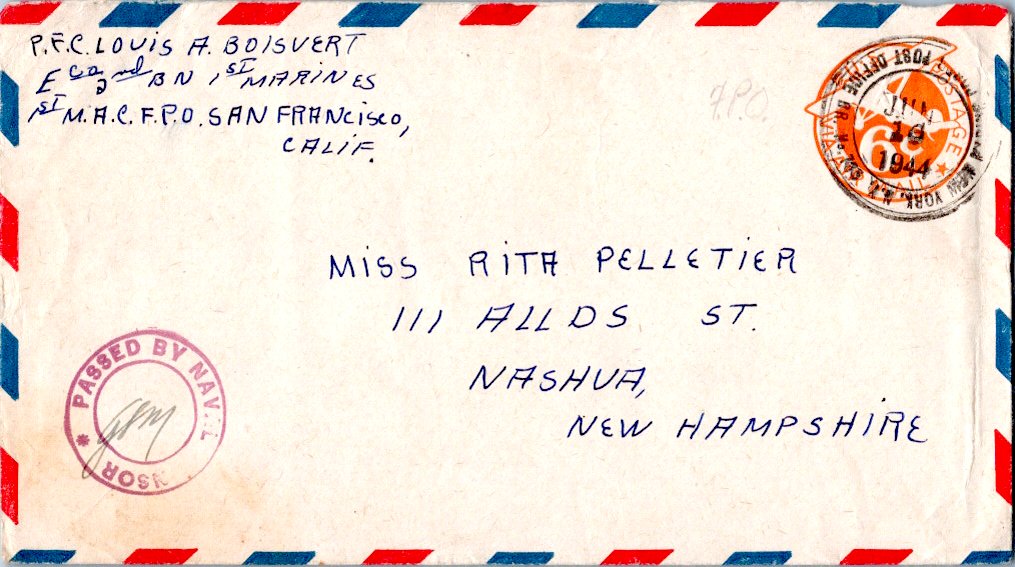 P.F.C. LOUIS A. BOISVERT
E Co 2nd BN 1ST MARINES
1ST M.A.C. F.P.O. SAN FRANCISCO,
CALIF.
F.P.O.
POSTAGE
6¢
VIA AIR MAIL
POST OFFICE BR. No.
NEW YORK, N.Y.
JUN
1944
MISS RITA PELLETIER
111 ALLDS ST.
NASHUA,
NEW HAMPSHIRE
PASSED BY NAVAL
NSOR